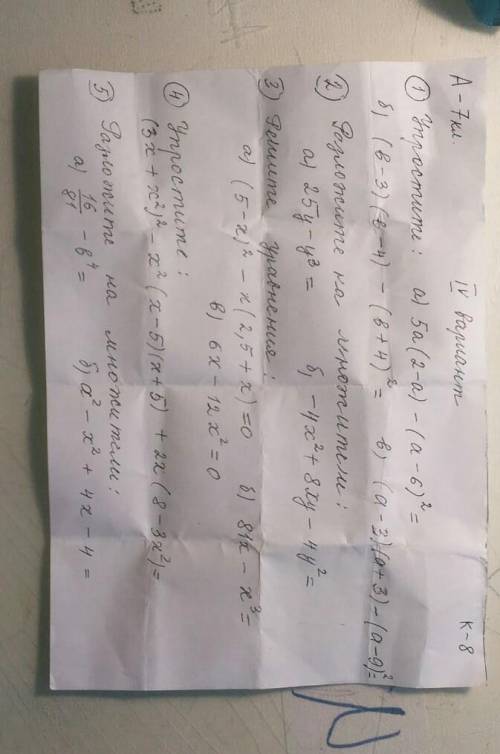 А-7кл. IV вариант К-8
① Упростите: а) 5a(2-a) - (a-6)² =
б) (b-3)(b-4) - (b+4)² = в) (a-3)(a+3) - (a-9)² =
2) Разложите на множители:
а) 25y - y³ = б) -4x² + 8xy - 4y² =
3) Решите уравнения:
а) (5-x)² - x(2,5+x) = 0 б) 81x - x³ =
в) 6x - 12x² = 0
④ Упростите:
(3x + x²)² - x²(x-5)(x+5) + 2x(8-3x²) =
5) Разложите на множители:
а) 16/81 - b⁴ = б) a² - x² + 4x - 4 =